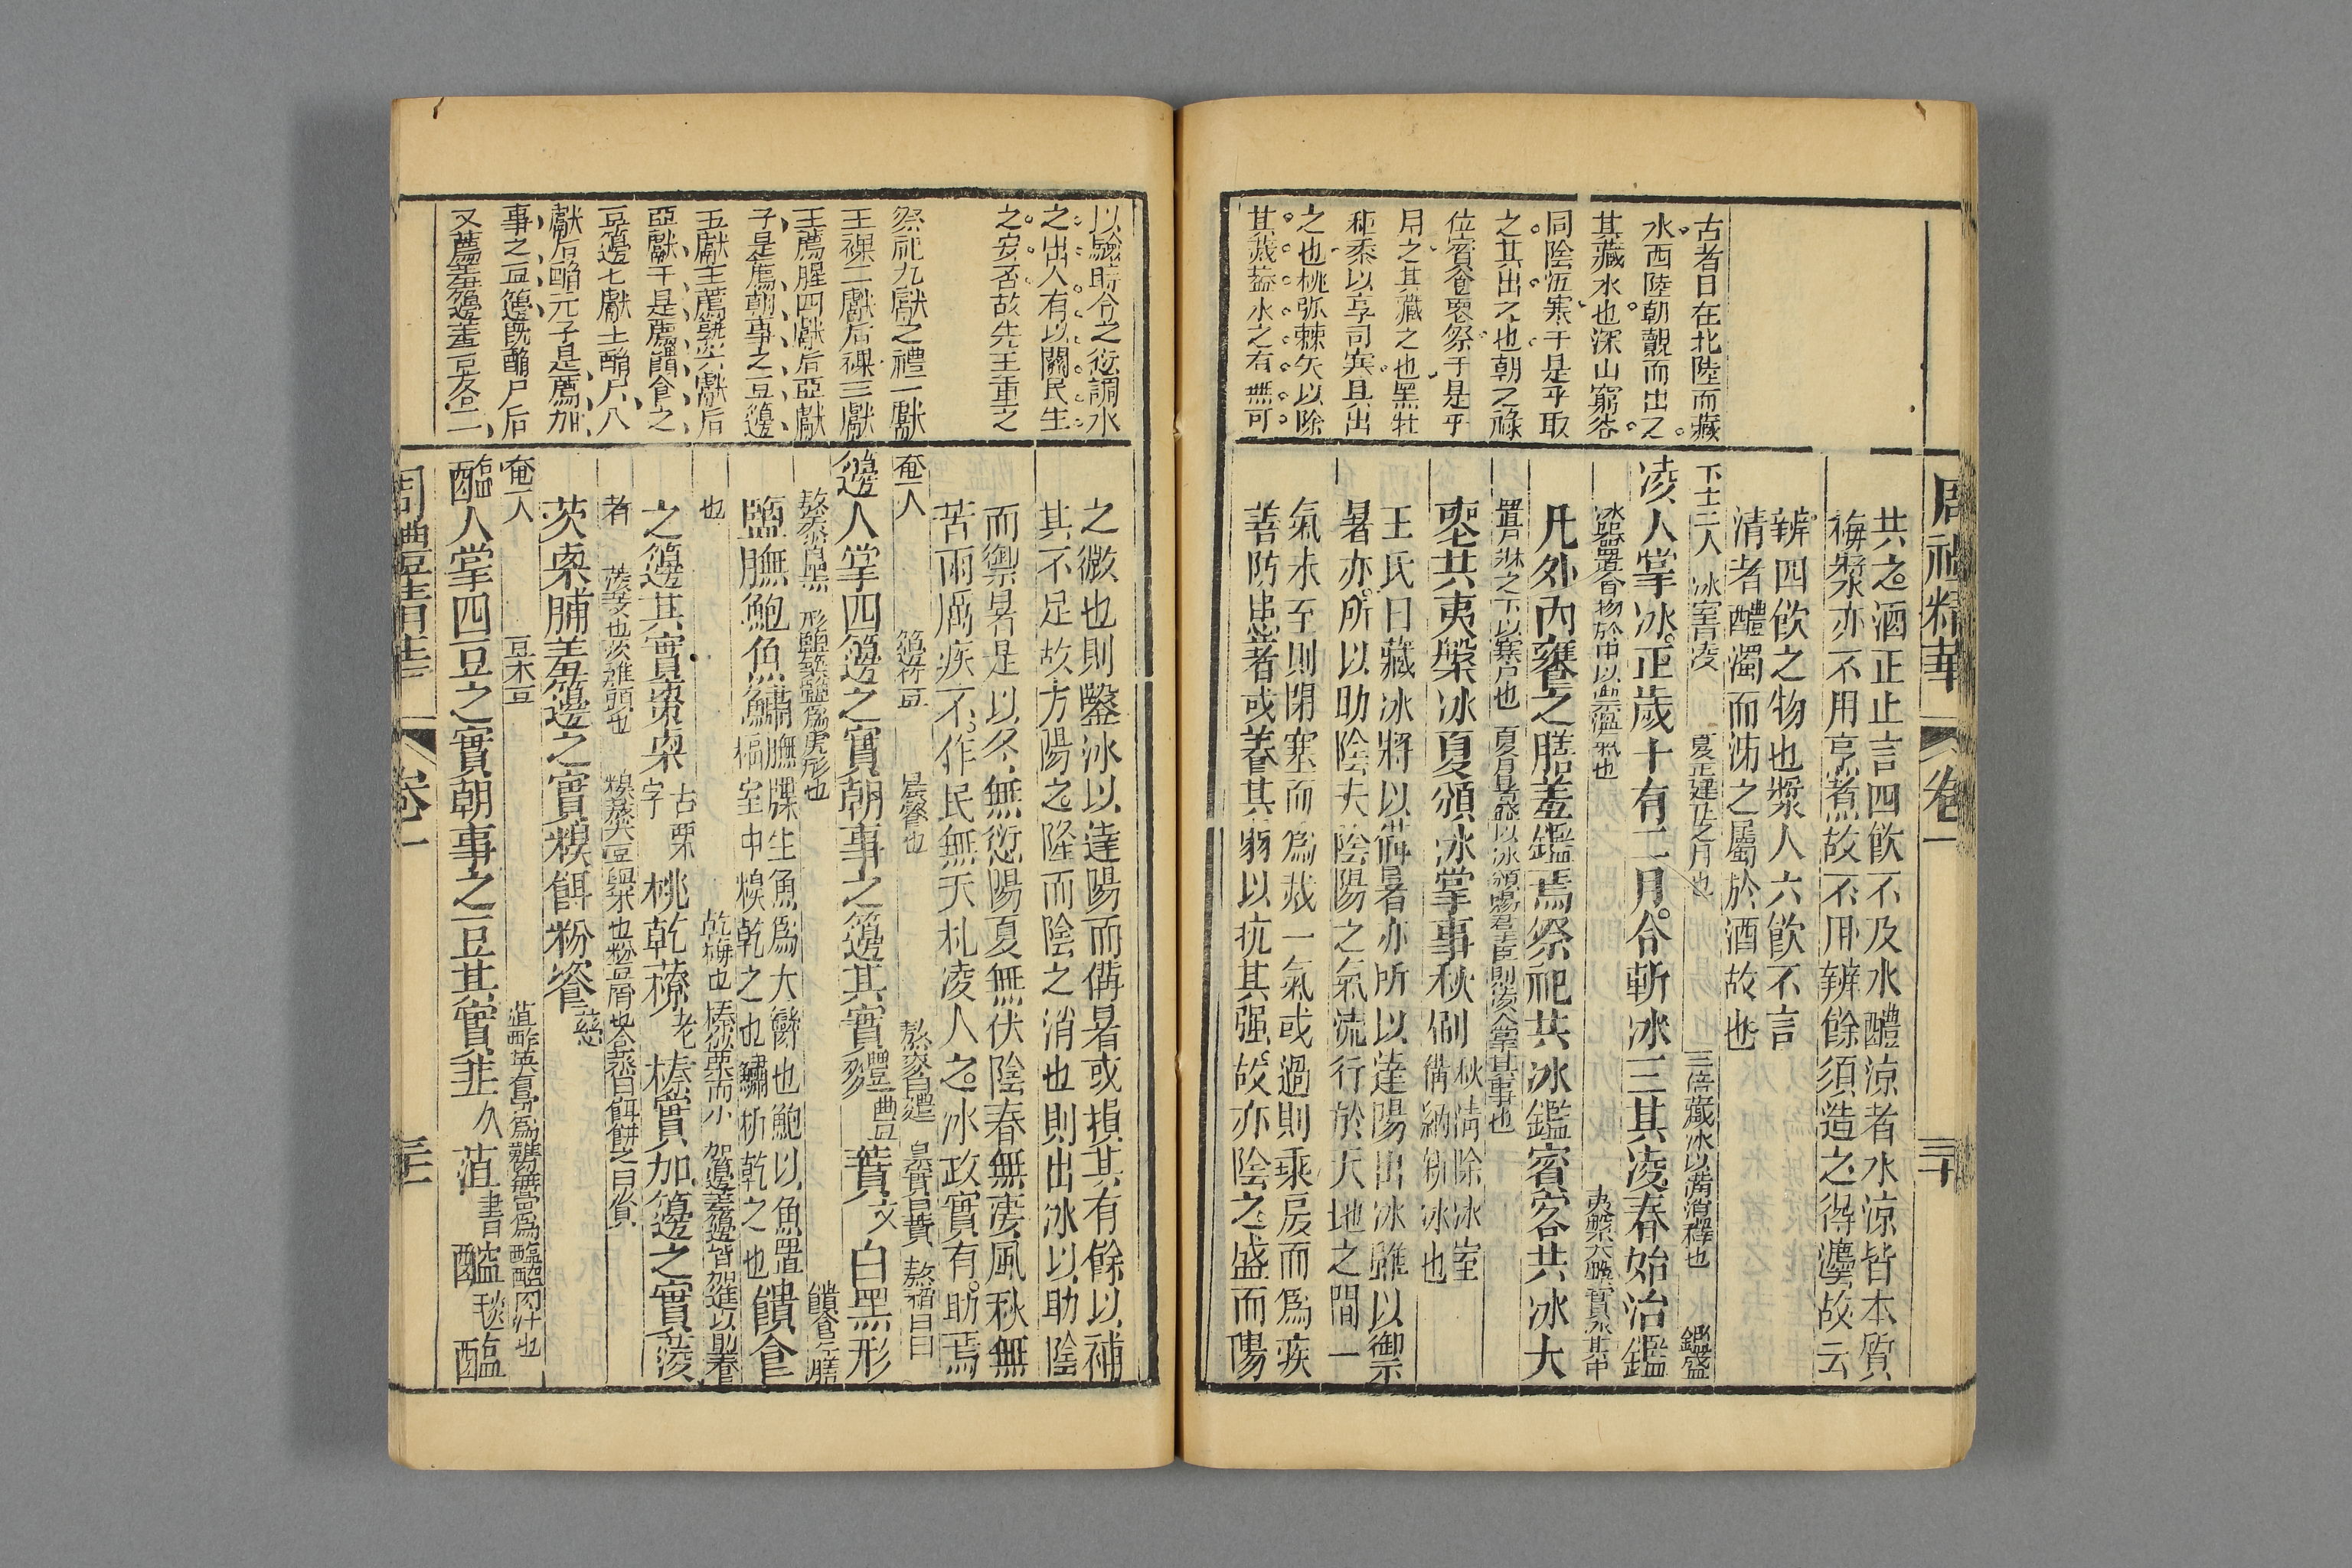 周禮精華
卷一
三十
古者日在北陸而藏
水西陸朝覿而出之
其藏水也深山窮谷
固陰沍寒于是乎取
之其出之也朝之祿
位賓食喪祭于是乎
用之其藏之也黑牡
秬黍以享司寒其出
之也桃弧棘矢以除
其災蓋水之有無可
共之酒正止言四飲不及水醴涼者水涼皆本質
梅漿亦不用烹煮故不用辨餘須造之得灋故云
辨四飲之物也漿人六飲不言
清者醴濁而沛之屬於酒故也
下士二人 冰室曰凌 夏正建丑之月也 三倍藏冰以備消釋也 鑑盛
凌人掌冰正歲十有二月令斬冰三其凌春始治鑑
冰器置食物於中以禦溫氣也 夷槃大槃實冰其中
凡外內饔之膳羞鑑焉祭祀共冰鑑賓客共冰大
置尸牀之下以寒尸也 夏月暑盛以冰頒賜羣臣則凌人掌其事也
喪共夷槃冰夏頒冰掌事秋刷秋清除冰室備納新冰也
王氏曰藏冰將以備暑亦所以達陽出冰雖以禦
暑亦所以助陰夫陰陽之氣流行於天地之間一
氣未至則閉塞而為烖一氣或過則乘戾而為疾
善防患者或養其弱以抗其强故亦陰之盛而陽
以驗時令之愆調水
之出入有以關民生
之安否故先王重之
祭祀九獻之禮一獻
王祼二獻后祼三獻
王薦腥四獻后亞獻
子是薦朝事之豆籩
五獻王薦孰六獻后
亞獻于是薦饋食之
豆籩七獻王酳尸八
獻后酳尸于是薦加
事之豆籩旣酳尸后
又薦羞籩羞豆各二
之微也則鑿冰以達陽而備暑或損其有餘以補
其不足故方陽之隆而陰之消也則出冰以助陰
而禦暑是以冬無愆陽夏無伏陰春無凄風秋無
苦雨厲疾不作民無夭札凌人之冰政實有助焉
奄一人 籩竹豆 晨餐也 熬麥曰麷 枲實曰蕡 熬稻曰
籩人掌四籩之實朝事之籩其實麷豐蕡文白黑形
熬黍曰黑 形鹽築鹽爲虎形也 饋食午膳
鹽膴鮑魚鱐膴𦠆生魚爲大臠也鮑以魚置楅室中糗乾之也鱐析乾之也饋食
也 乾梅也 榛似栗而小 加籩羞籩皆加進以助養
之籩其實棗㮚古栗字桃乾䕩老榛實加籩之實菱
者 菱芰也芡雞頭也 糗熬大豆與米也粉豆屑也合蒸曰餌餅之曰餈
芡㮚脯羞籩之實糗餌粉餈慈
奄一人 豆木豆 菹酢英有骨爲臡無骨爲醢醓肉汁也
醢人掌四豆之實朝事之豆其實韭久菹書醓毯醢
周禮精華
卷一
三十一